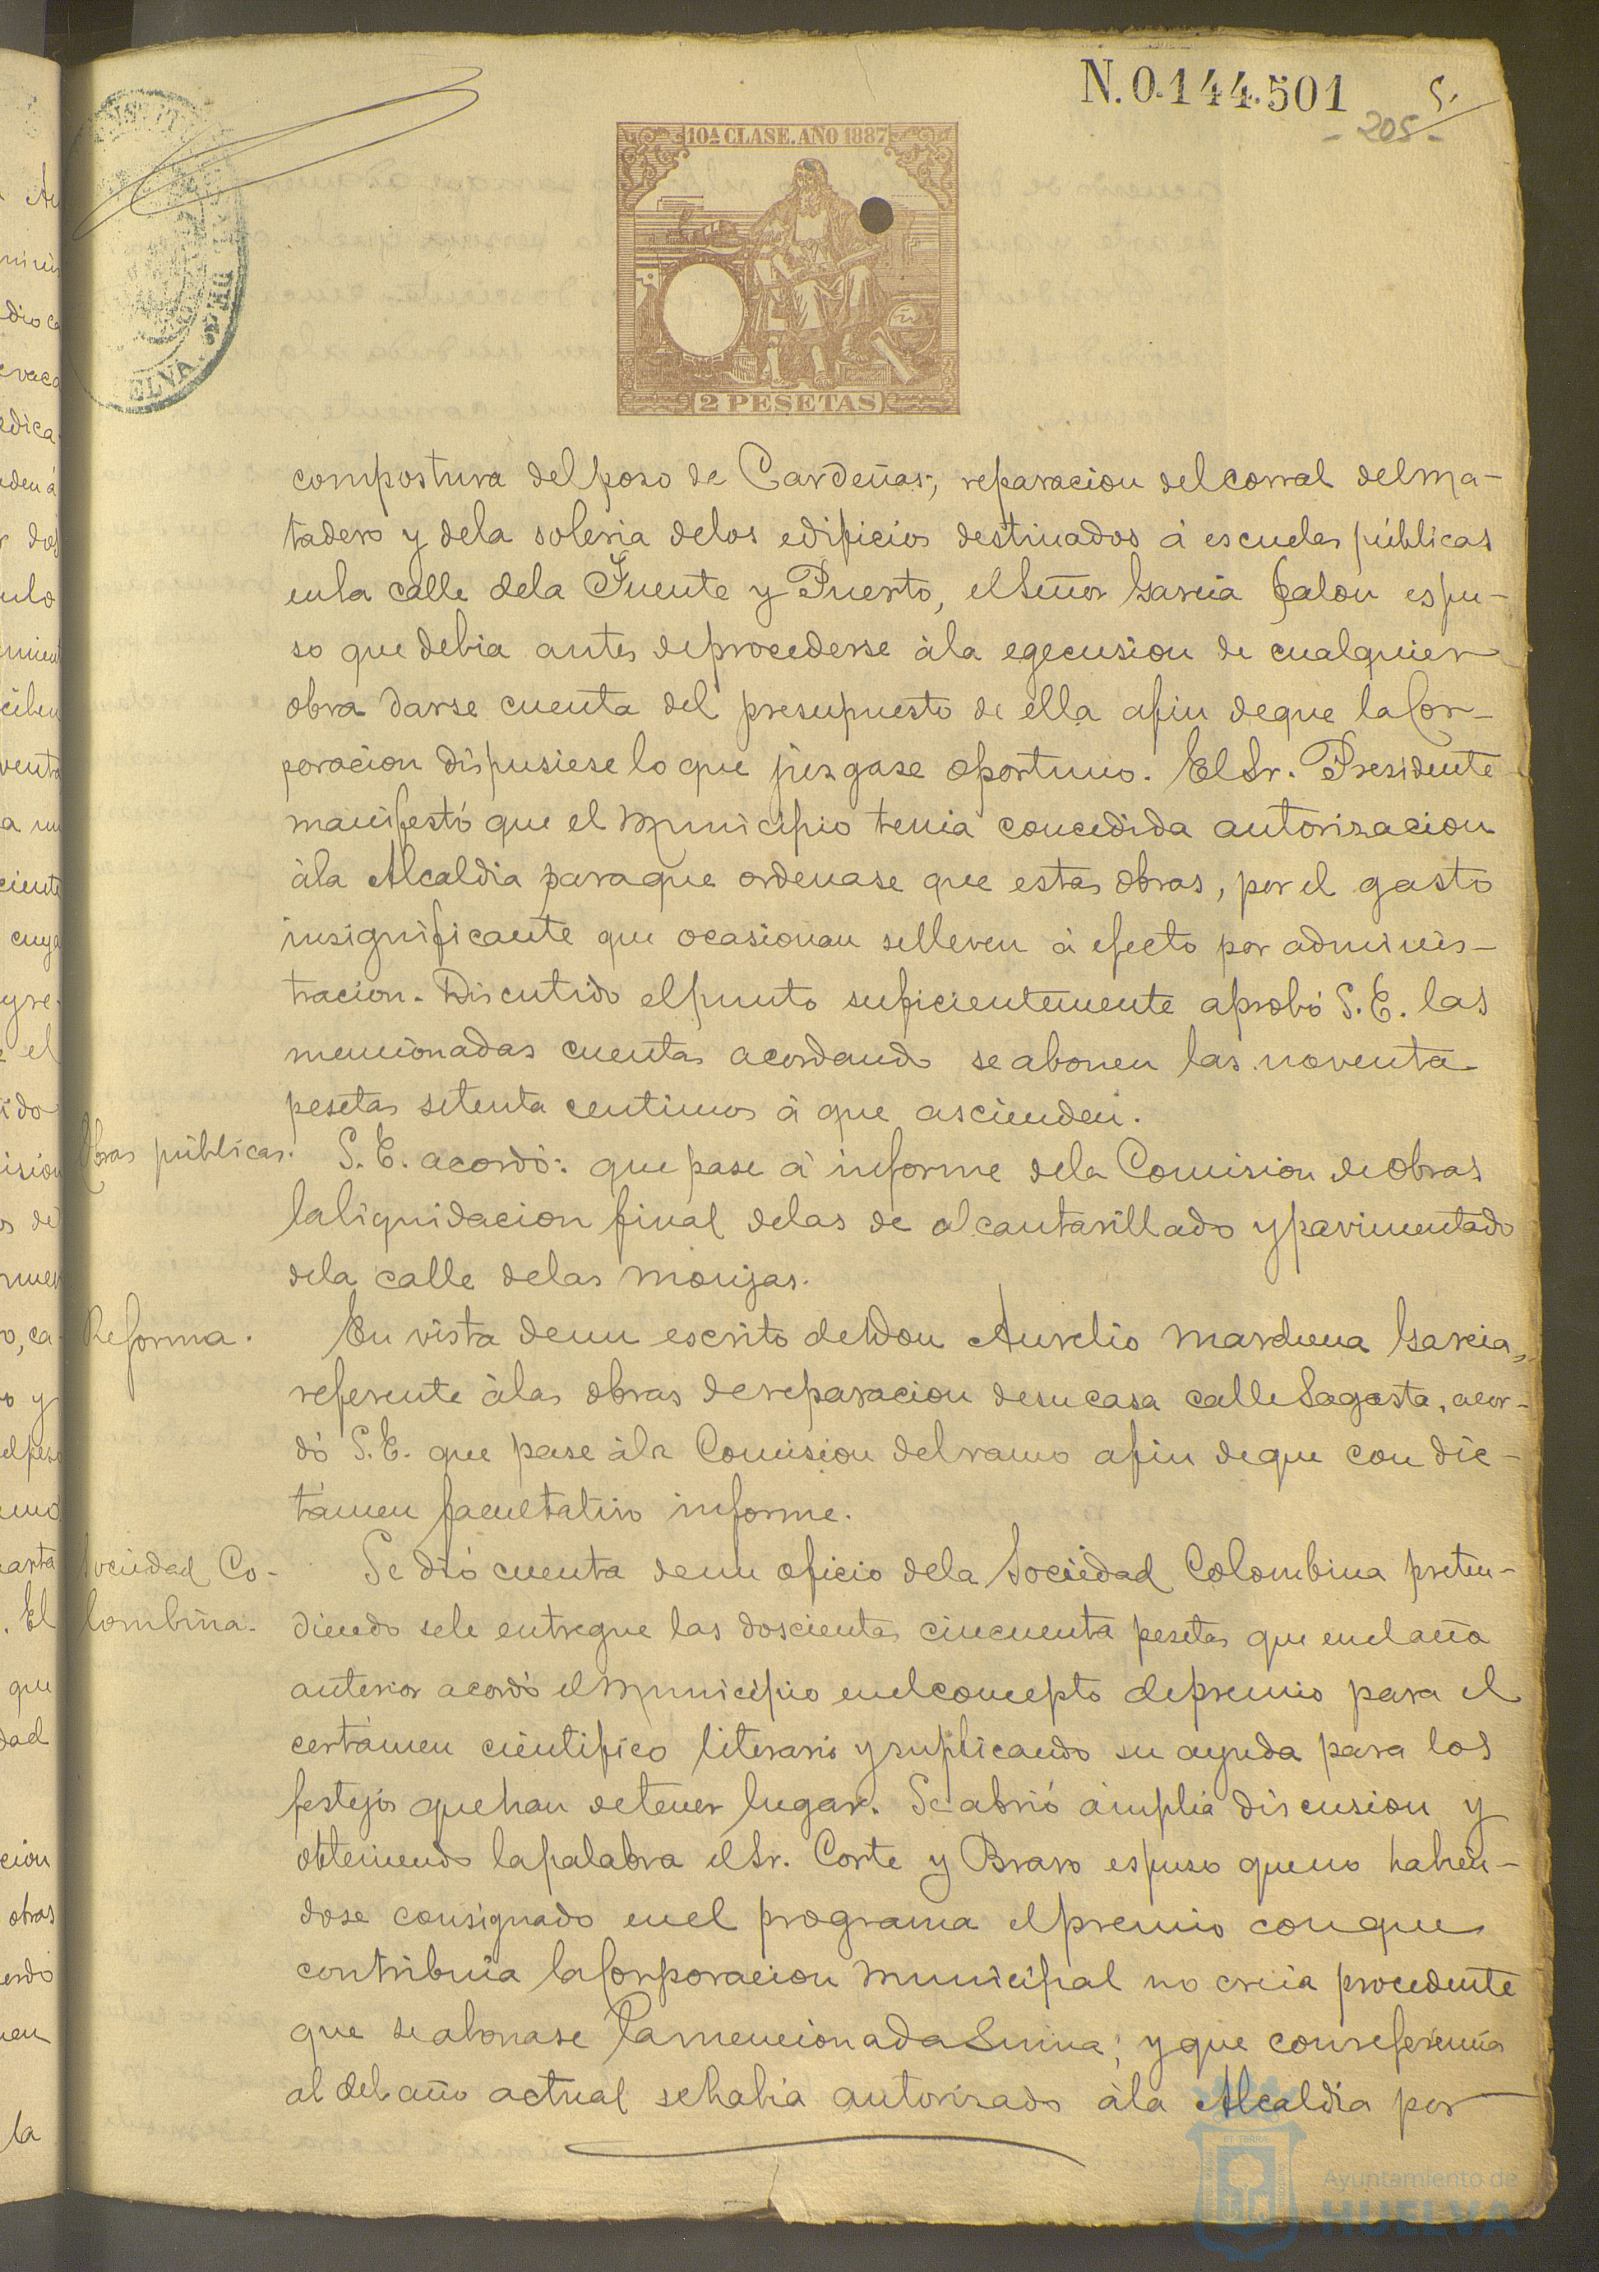 N. 0.144.501
5.
- 205 -
10ª CLASE. AÑO 1887
2 PESETAS
ELVA
compostura del poso de Cardeñas, reparacion del corral del ma-
tadero y de la soleria de los edificios destinados á escuelas públicas
en la calle de la Fuente y Puerto, el Señor Garcia Jalon espu-
so que debia antes de procederse á la egecusion de cualquier
obra darse cuenta del presupuesto de ella afin de que la Cor-
poracion dispusiese lo que juzgase oportuno. El Sr. Presidente
manifestó que el Municipio tenia concedida autorisacion
á la Alcaldia para que ordenase que estas obras, por el gasto
insignificante que ocasionan se lleven á efecto por adminis-
tracion. Discutido el punto suficientemente aprobó S. E. las
mencionadas cuentas acordando se abonen las noventa
pesetas setenta centimos á que ascienden.
Obras públicas. S. E. acordó: que pase á informe de la Comision de obras
la liquidacion final de las de alcantarillado y pavimentado
de la calle de las Monjas.
Reforma. En vista de un escrito de Don Aurelio Garcia,
referente á las obras de reparacion de su casa calle Sagasta, acor-
dó S. E. que pase á la Comision del ramo afin de que con dic-
támen facultativo informe.
Sociedad Co- Se dió cuenta de un oficio de la Sociedad Colombina preten-
lombina. diendo se le entregue las doscientas cincuenta pesetas que en el año
anterior acordó el Municipio en el concepto de premio para el
certámen cientifico literario y suplicando su ayuda para los
festejos que han de tener lugar. Se abrió ámplia discusion y
obteniendo la palabra el Sr. Corte y Bravo espuso que no habien-
dose consignado en el programa el premio con que
contribuia la Corporacion Municipal no creia procedente
que se abonase la mencionada Suma; y que con referencia
al del año actual se habia autorisado á la Alcaldia por
Ayuntamiento de
HUELVA